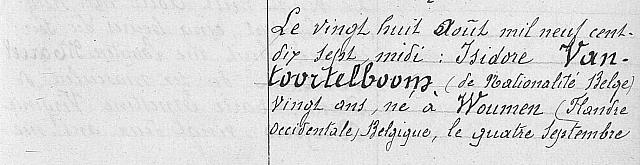 Le vingt huit Août mil neuf cent-
dix sept midi : Isidore Van-
toortelboom, (de Nationalité Belge)
vingt ans, né à Woumen (Flandre
Occidentale) Belgique, le quatre Septembre